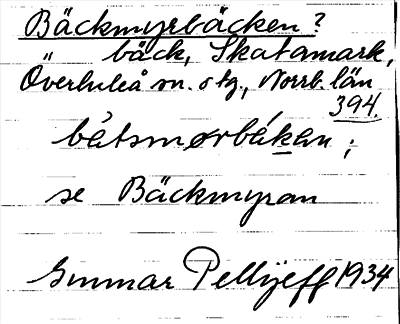 Bäckmyrbäcken?
bäck, Skatamark,
Överluleå sn. o tg., Norrb. län
394.
bétsmørbékan;
se Bäckmyran
Gunnar Pellijeff 1934